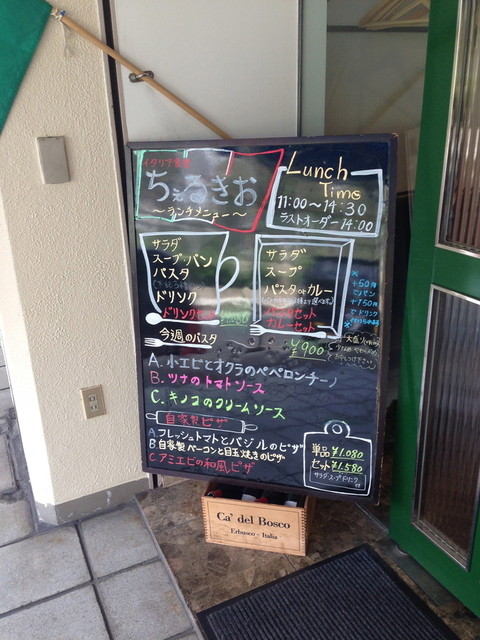 イタリア食堂
ちぇるきお
〜ランチメニュー〜
Lunch
Time
11:00〜14:30
ラストオーダー 14:00
サラダ
スープ・パン
パスタ
ドリンク
ドリンクセット
サラダ
スープ
パスタorカレー
パスタセット
カレーセット
¥900
+50円
でパン
+150円
でドリンク
今週のパスタ
A. 小エビとオクラのペペロンチーノ
B. ツナのトマトソース
C. キノコのクリームソース
自家製ピザ
A フレッシュトマトとバジルのピザ
B 自家製ベーコンと目玉焼きのピザ
C アミエビの和風ピザ
単品 ¥1.080
セット ¥1.580
サラダ・スープ・ドリンク
付
Ca' del Bosco
Erbusco - Italia